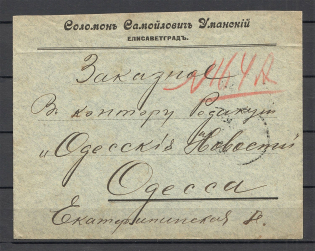 Соломонъ Самойловичъ Уманскій
ЕЛИСАВЕТГРАДЪ.
Заказное
В контору Редакціи
„Одесскія Новости
Одесса
Екатерининская